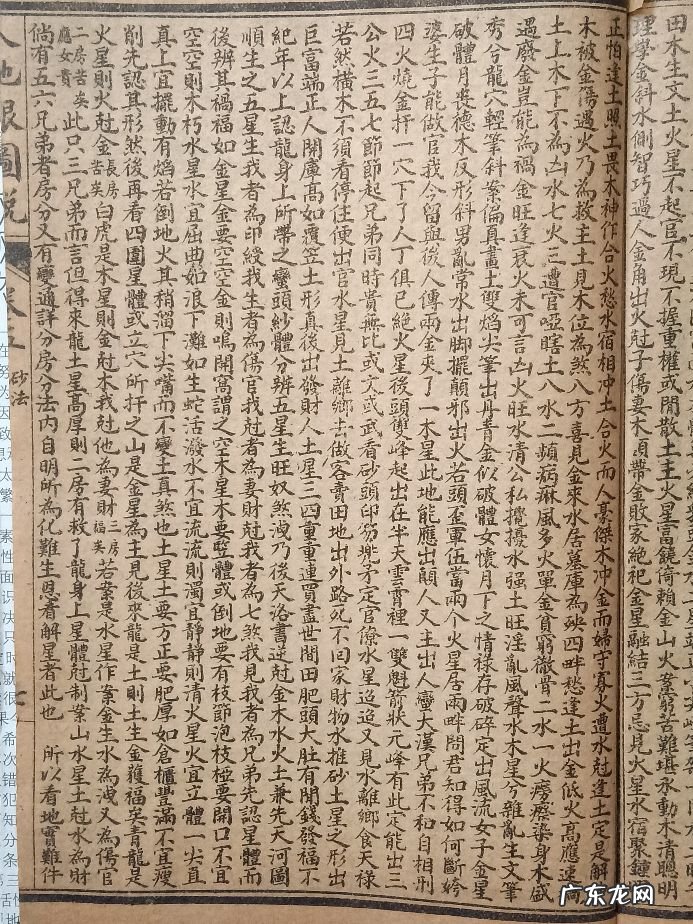 田木生文土火星不起官不現不握重權或閒散土主火星富饒倚賴金山火案窮苦難堪永動木清聰明
理學金斜水側智巧過人金角出火尅子傷妻木頭帶金敗家絕祀金星融結三方忌見火星水宿聚鐘
止怕逢土照土畏木神作合火愁水宿相冲土合火而人豪傑木冲金而婦守寡火遭水尅逢土定是解
木被金傷遇火乃為救主土見木位為煞八方喜見金來水居墓庫為殃四畔愁逢土出金低火高應速
土上木下不為凶水七火三遭官啞瞎土八水二頻病麻風多火單金貧窮徹骨二水一火癆瘵染身木盛
遇廢金豈能為禍金旺逢衰火未可言凶火旺水清公私攪擾水强土旺淫亂風聲水木星兮雜亂生文筆
秀兮龍穴輕筆斜案偏真畫土雙焰尖筆出丹青金似破體女懷月下之情祿存破碎定出風流女子金星
破體月喪德木反形斜男亂常水出脚擺顛邪出火若頭歪軍伍當兩個火星居兩畔問君知得如何斷娇
婆生子能做官我今留與後人傳兩金夾了一木星此地能應出顛人又主出人蠻大漢兄弟不和自相刑
四火燒金扦一穴下了人丁俱已絕火星後頭雙峰起出在半天雲霄裡一雙魁箭狀元峰有此定能出三
公火三五七節節起兄弟同時貴無比或文或武看砂頭印笏
矛定官僚水星迢迢又見水離鄉食天祿
若然橫木不須看停住便出官水星見土離鄉去做客賣田地出外路死不回家財物水推砂土星之形出
巨富端正人開廣高如覆笠土形真後出發財人土星三四重重連買盡世間田肥頭大肚有閒錢發福不
紀年以上認龍身上所帶之蠻頭紗體分辨五星生旺奴煞洩乃後天洛書逆尅金木水火土兼先天河圖
順生之五星生我者為印綬我生者為傷官我尅者為妻財尅我者為七煞我見我者為兄弟先認星體而
後辨其禍福如金星金要空空金則鳴開窩謂之空木星木要竪體或倒地要有枝節泡枝椏要開口不宜
空空則木朽水星水宜屈曲如浪下灘如生蛇活潑水不宜流流則濁宜靜靜則清火星火宜立體 尖直
真上宜擺動有焰若倒地火其梢溜下尖嘴而不變土真煞也土星土要方正要肥厚如倉櫃豐滿不宜瘦
削先認其形然後再看四圍星體或立穴所扦之山是金星為主見後來龍是土則土生金獲福矣青龍是
火星則火尅金長房苦矣白虎是木星則金尅木我尅他為妻財三房福矣若案是水星作案金生水為洩又為傷官
二房苦矣應女貴此只三兄弟而言但得來龍土星高厚則二房有救了龍身上星體尅制案山水星土尅水為財
倘有五六兄弟者房分又有變通詳分房分法內自明所為化難生恩者解星者此也 所以看地實難件
人地眼圖說
砂法
七
广东龙网